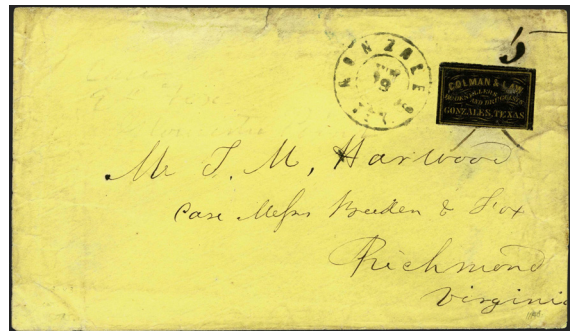 5
GONZALES
COLMAN & LAW
BOOKSELLERS
AND DRUGGISTS
GONZALES, TEXAS
Mr T. M, Harwood
Care Messrs Breeden & Fox
Richmond
Virginia